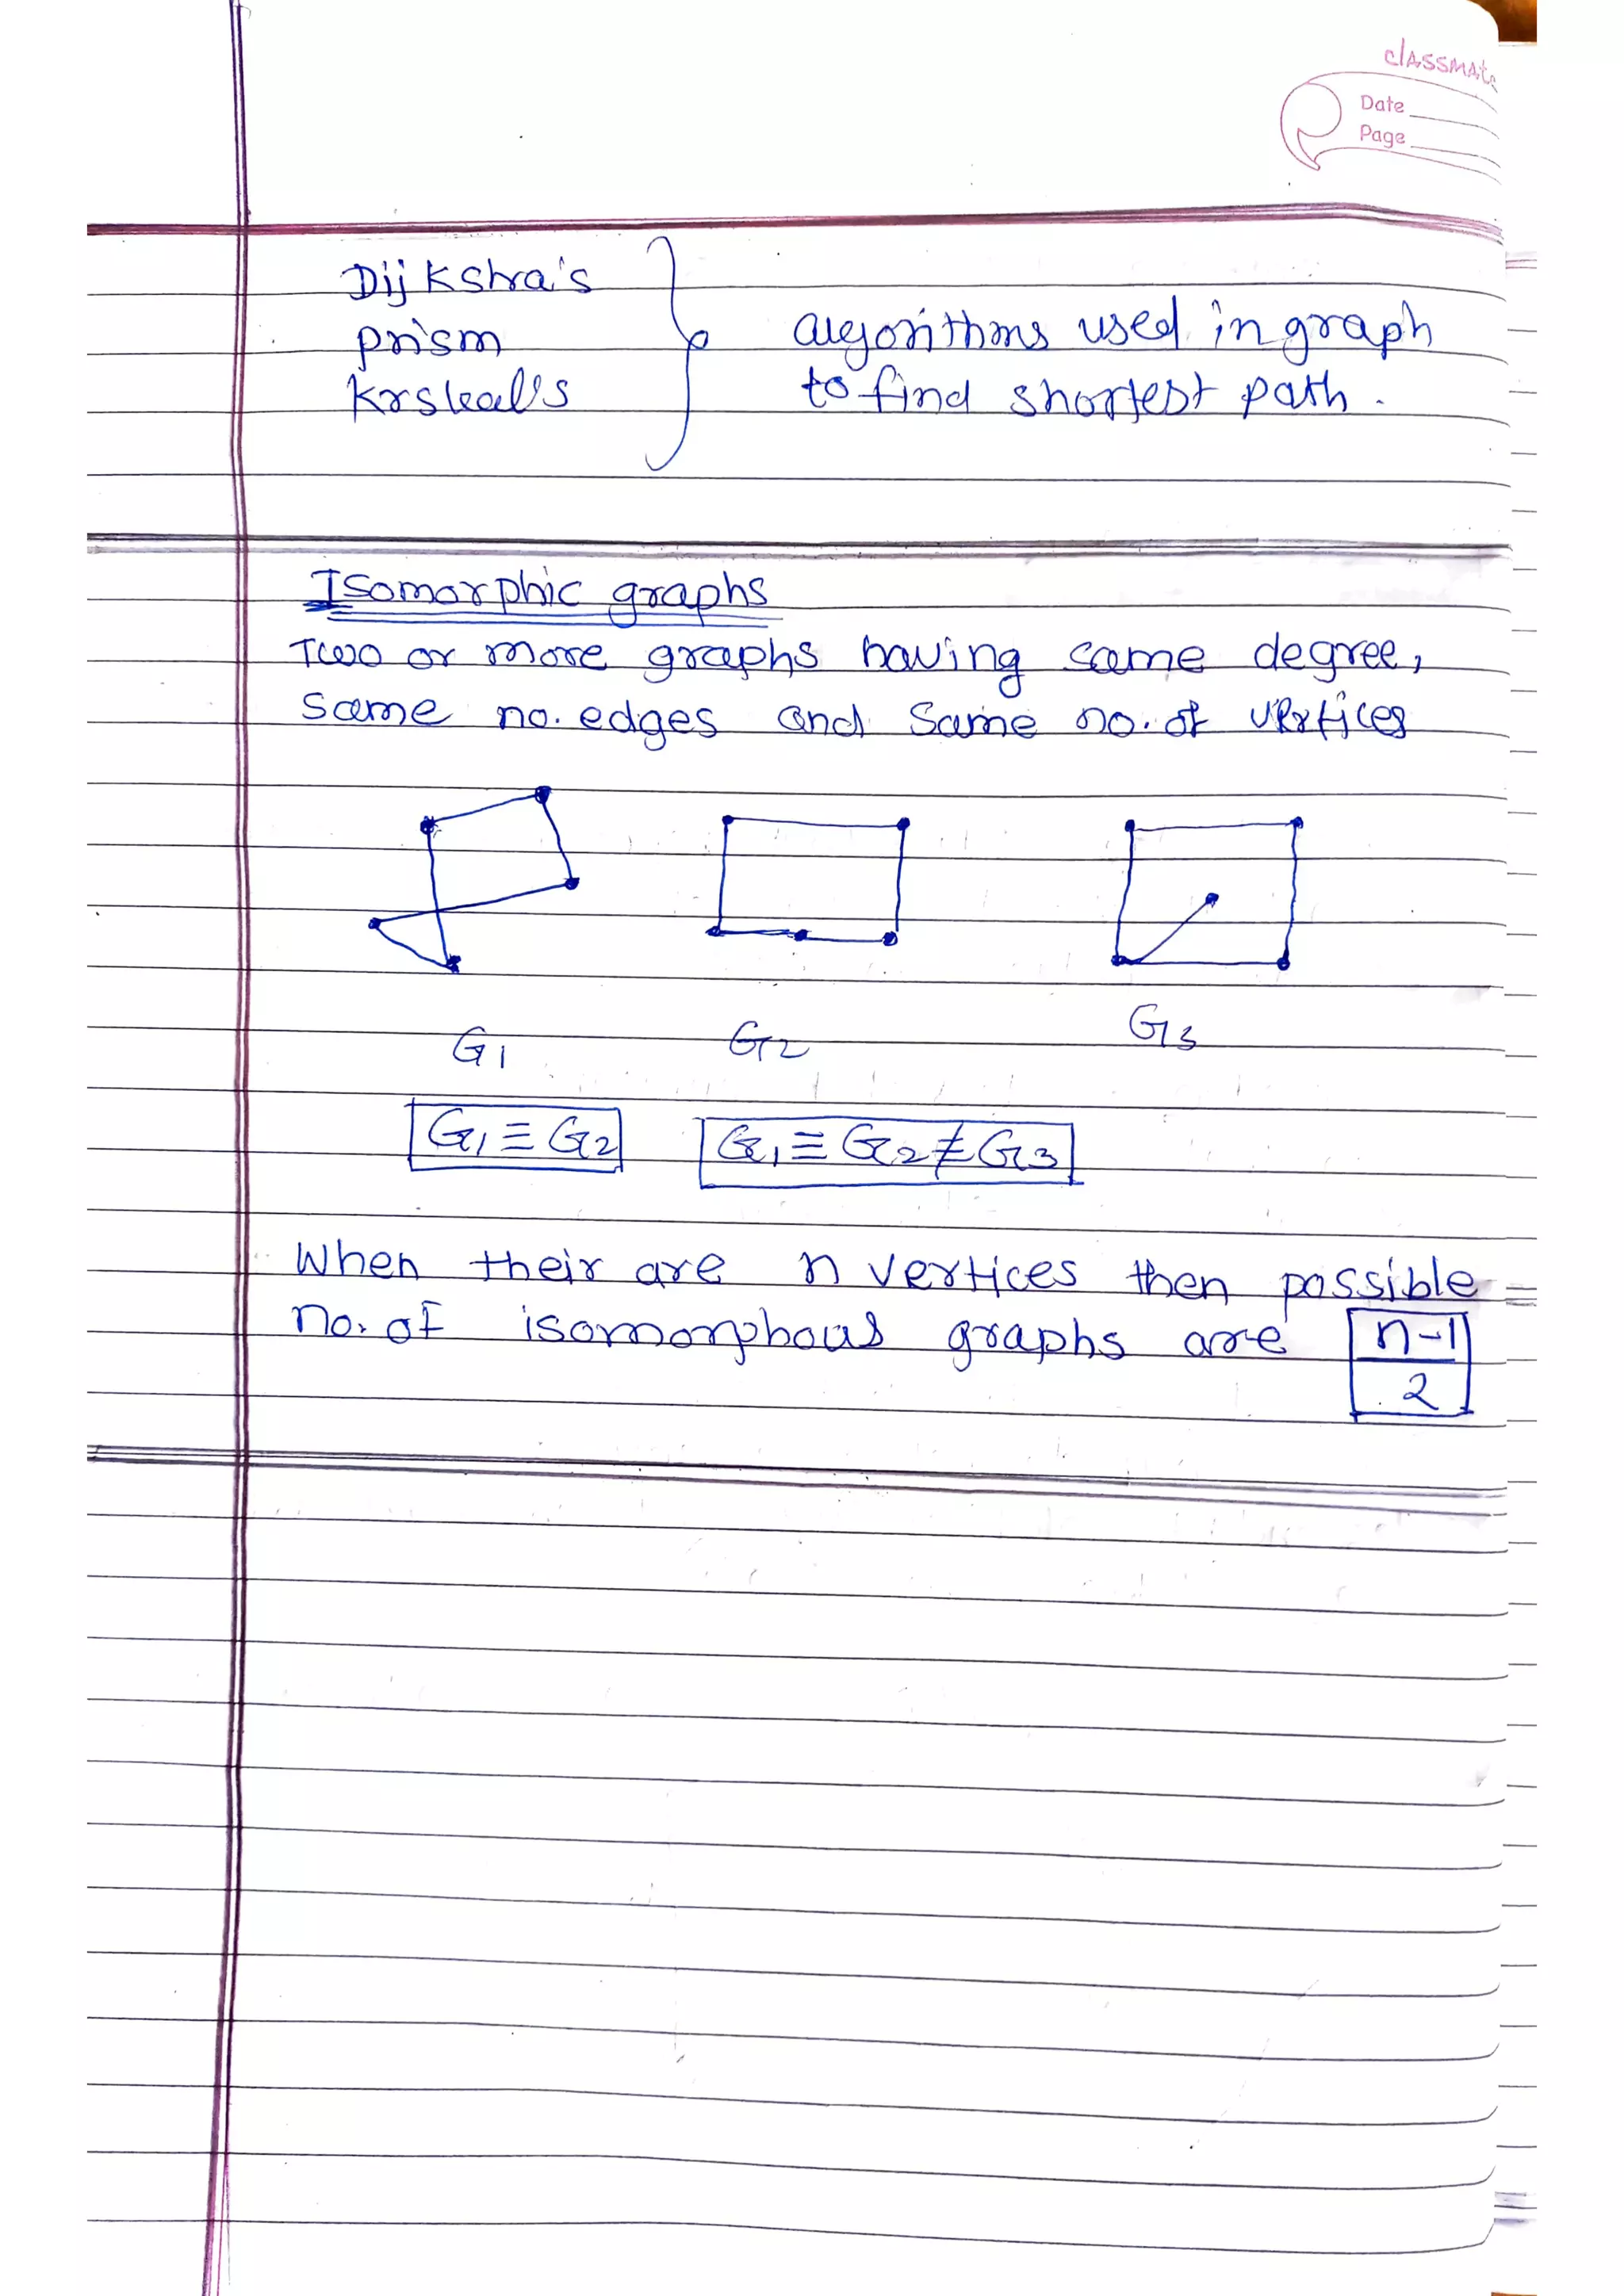 classmate
Date
Page
Dijkstra's
prism
krskal's
algorithms used in graph
to find shortest path.
Isomorphic graphs
Two or more graphs having same degree,
same no. edges and same no. of vertices
G1
G2
G3
G1 ≡ G2
G1 ≡ G2 ≠ G3
When their are n vertices then possible
no. of isomorphous graphs are n-1
2